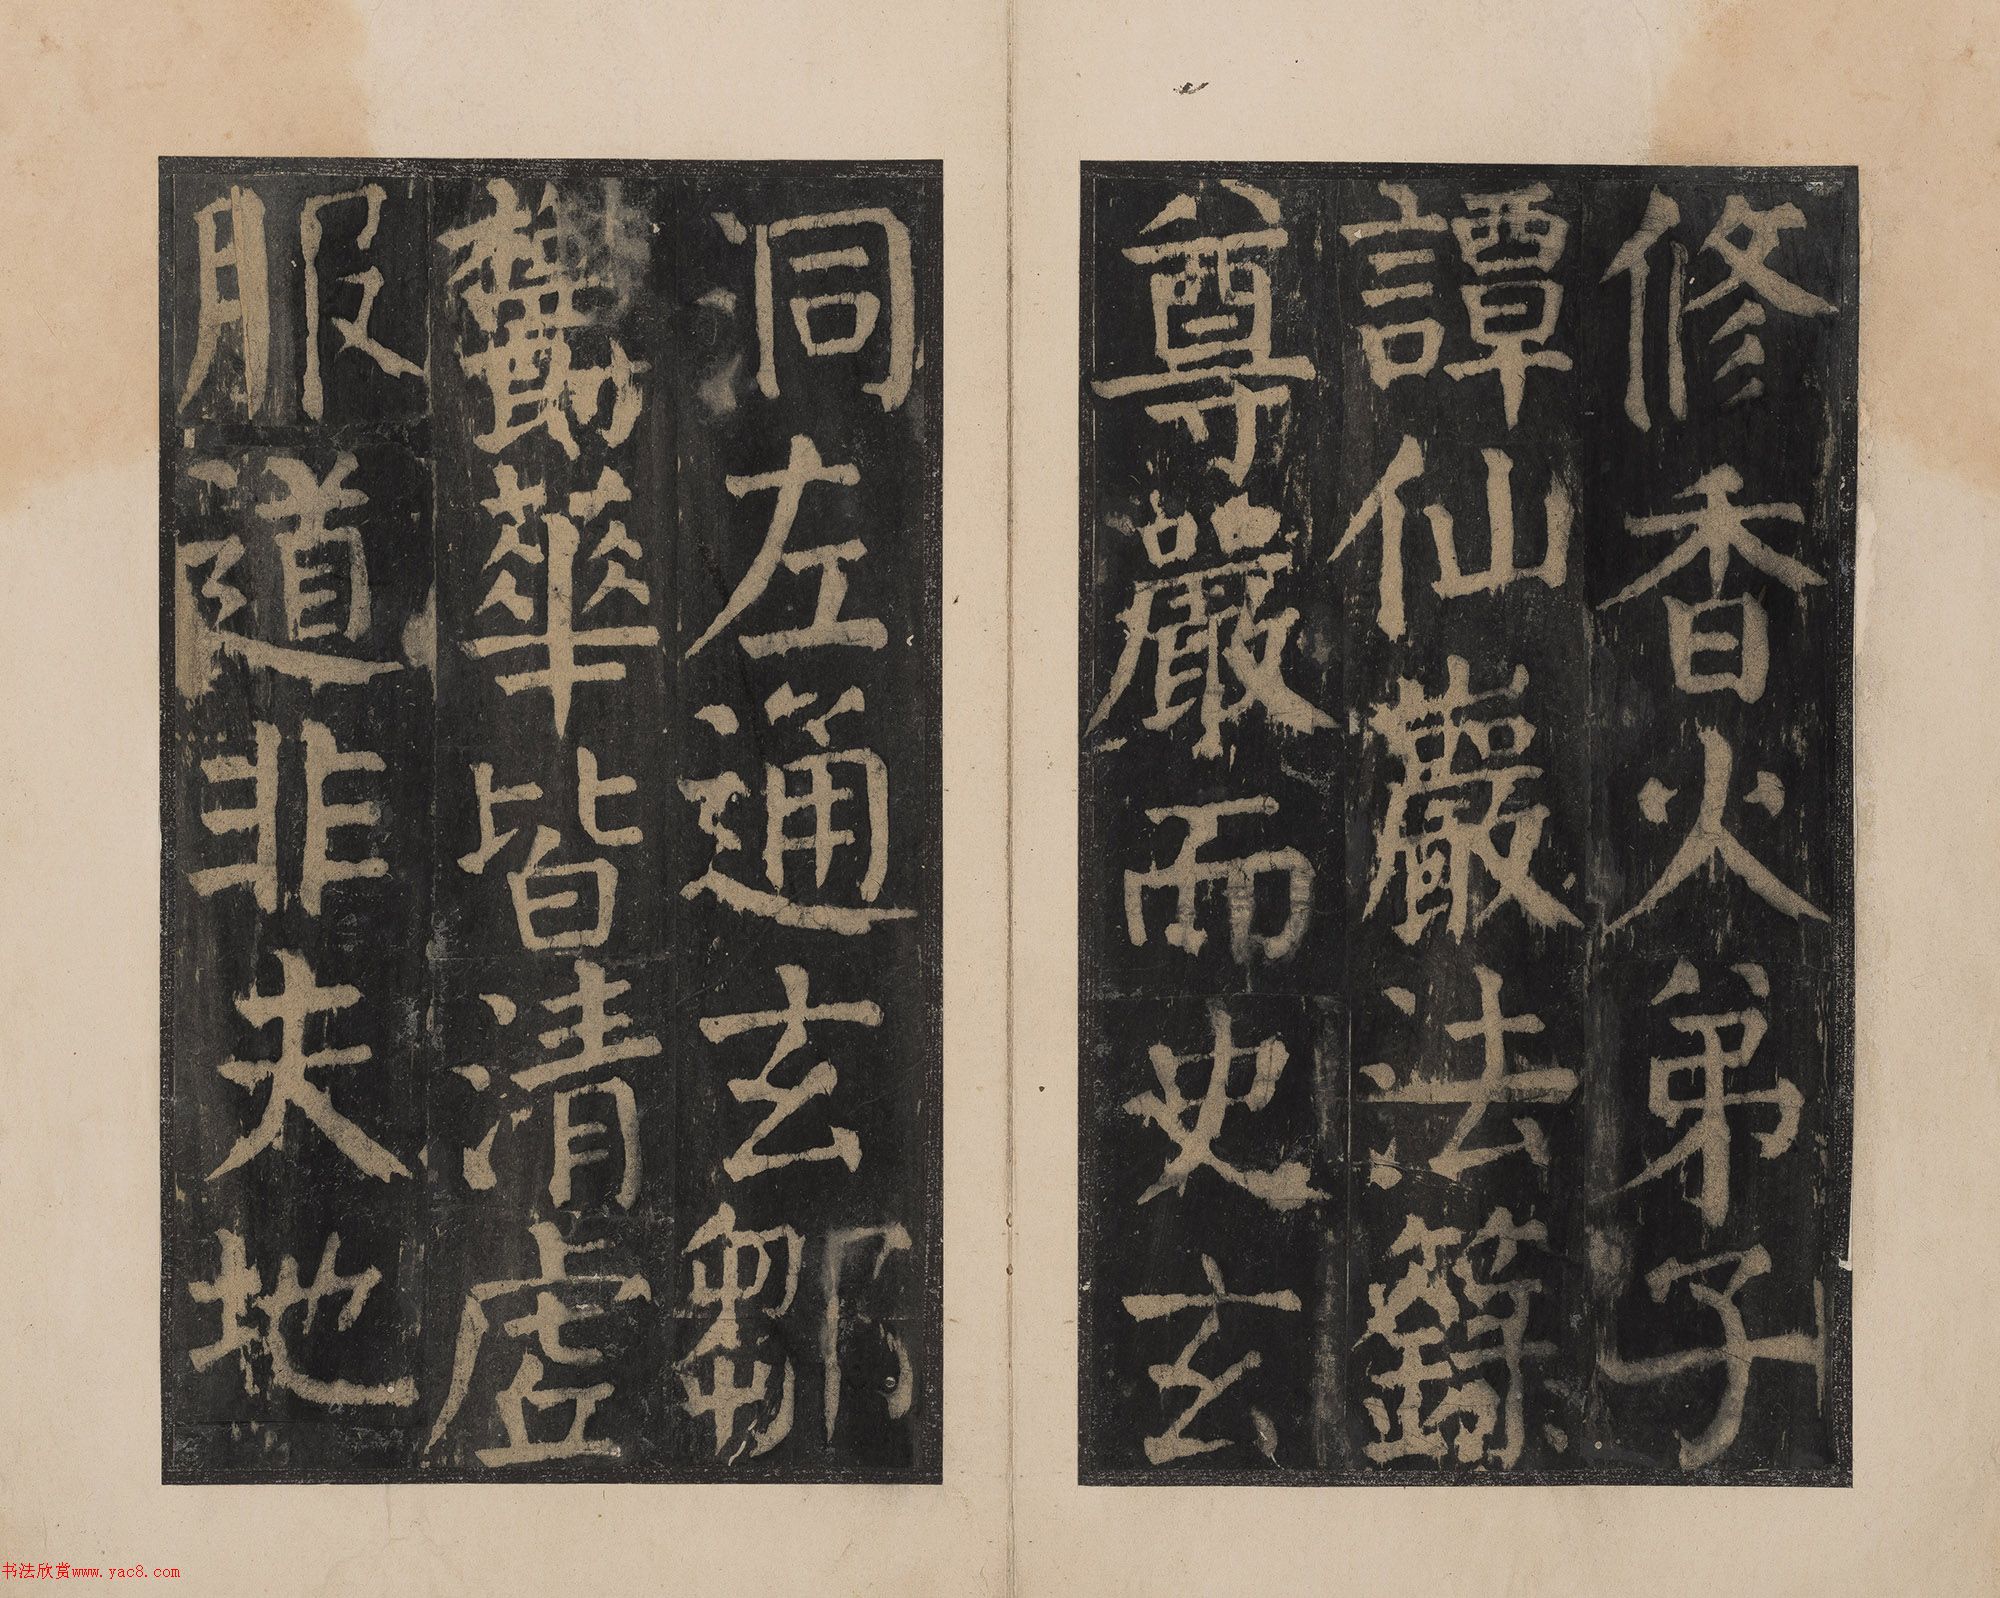 修香火弟子
譚仙巖法籙
尊嚴而史玄
洞左通玄鄒
鬱華皆清虛
服道非夫地
书法欣赏www.yac8.com